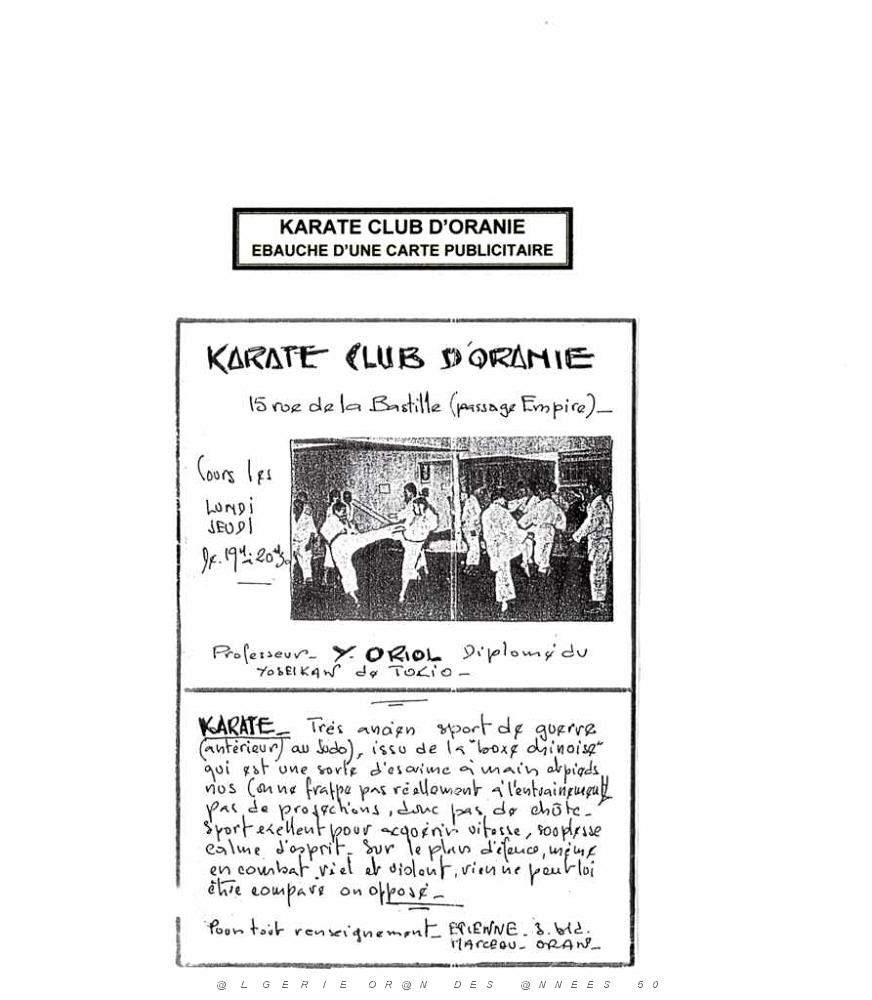 KARATE CLUB D'ORANIE
EBAUCHE D'UNE CARTE PUBLICITAIRE
KARATE CLUB D'ORANIE
15 rue de la Bastille (passage Empire)_
Cours les
LUNDI
JEUDI
de 19h à 20h30
Professeur_ Y. ORIOL Diplomé du
YOSEIKAN de TOKIO_
KARATE_ Trés ancien sport de guerre
(antérieur) au Judo), issu de la "boxe chinoise"
qui est une sorte d'escrime à main et pieds
nus (on ne frappe pas réellement à l'entrainement)
pas de projections, donc pas de chûte_
Sport exellent pour acquérir vitesse, souplesse
calme d'esprit_ Sur le plan défence, même
en combat réel et violent, rien ne peut lui
être comparé ou opposé_
Pour tout renseignement_ ETIENNE_ 3. bld.
MARCEAU_ ORAN_
@ L G E R I E O R @ N D E S @ N N E E S 5 0